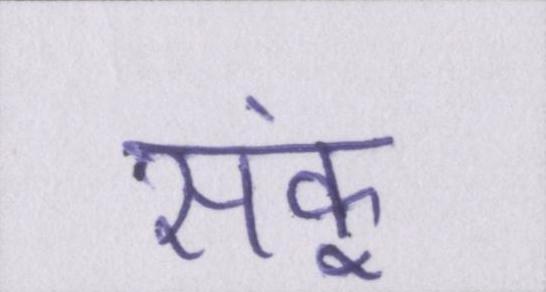 संकू